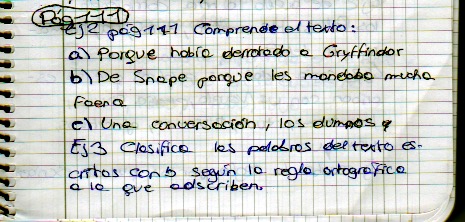 Pag 111
Ej2 pag 111 Comprende el texto:
a) Porque había derrotado a Gryffindor
b) De Snape porque les mandaba mucha
faena
c) Una conversación, los alumnos y
Ej3 Clasifica las palabras del texto es-
critas con b según la regla ortográfica
a la que adscriben.